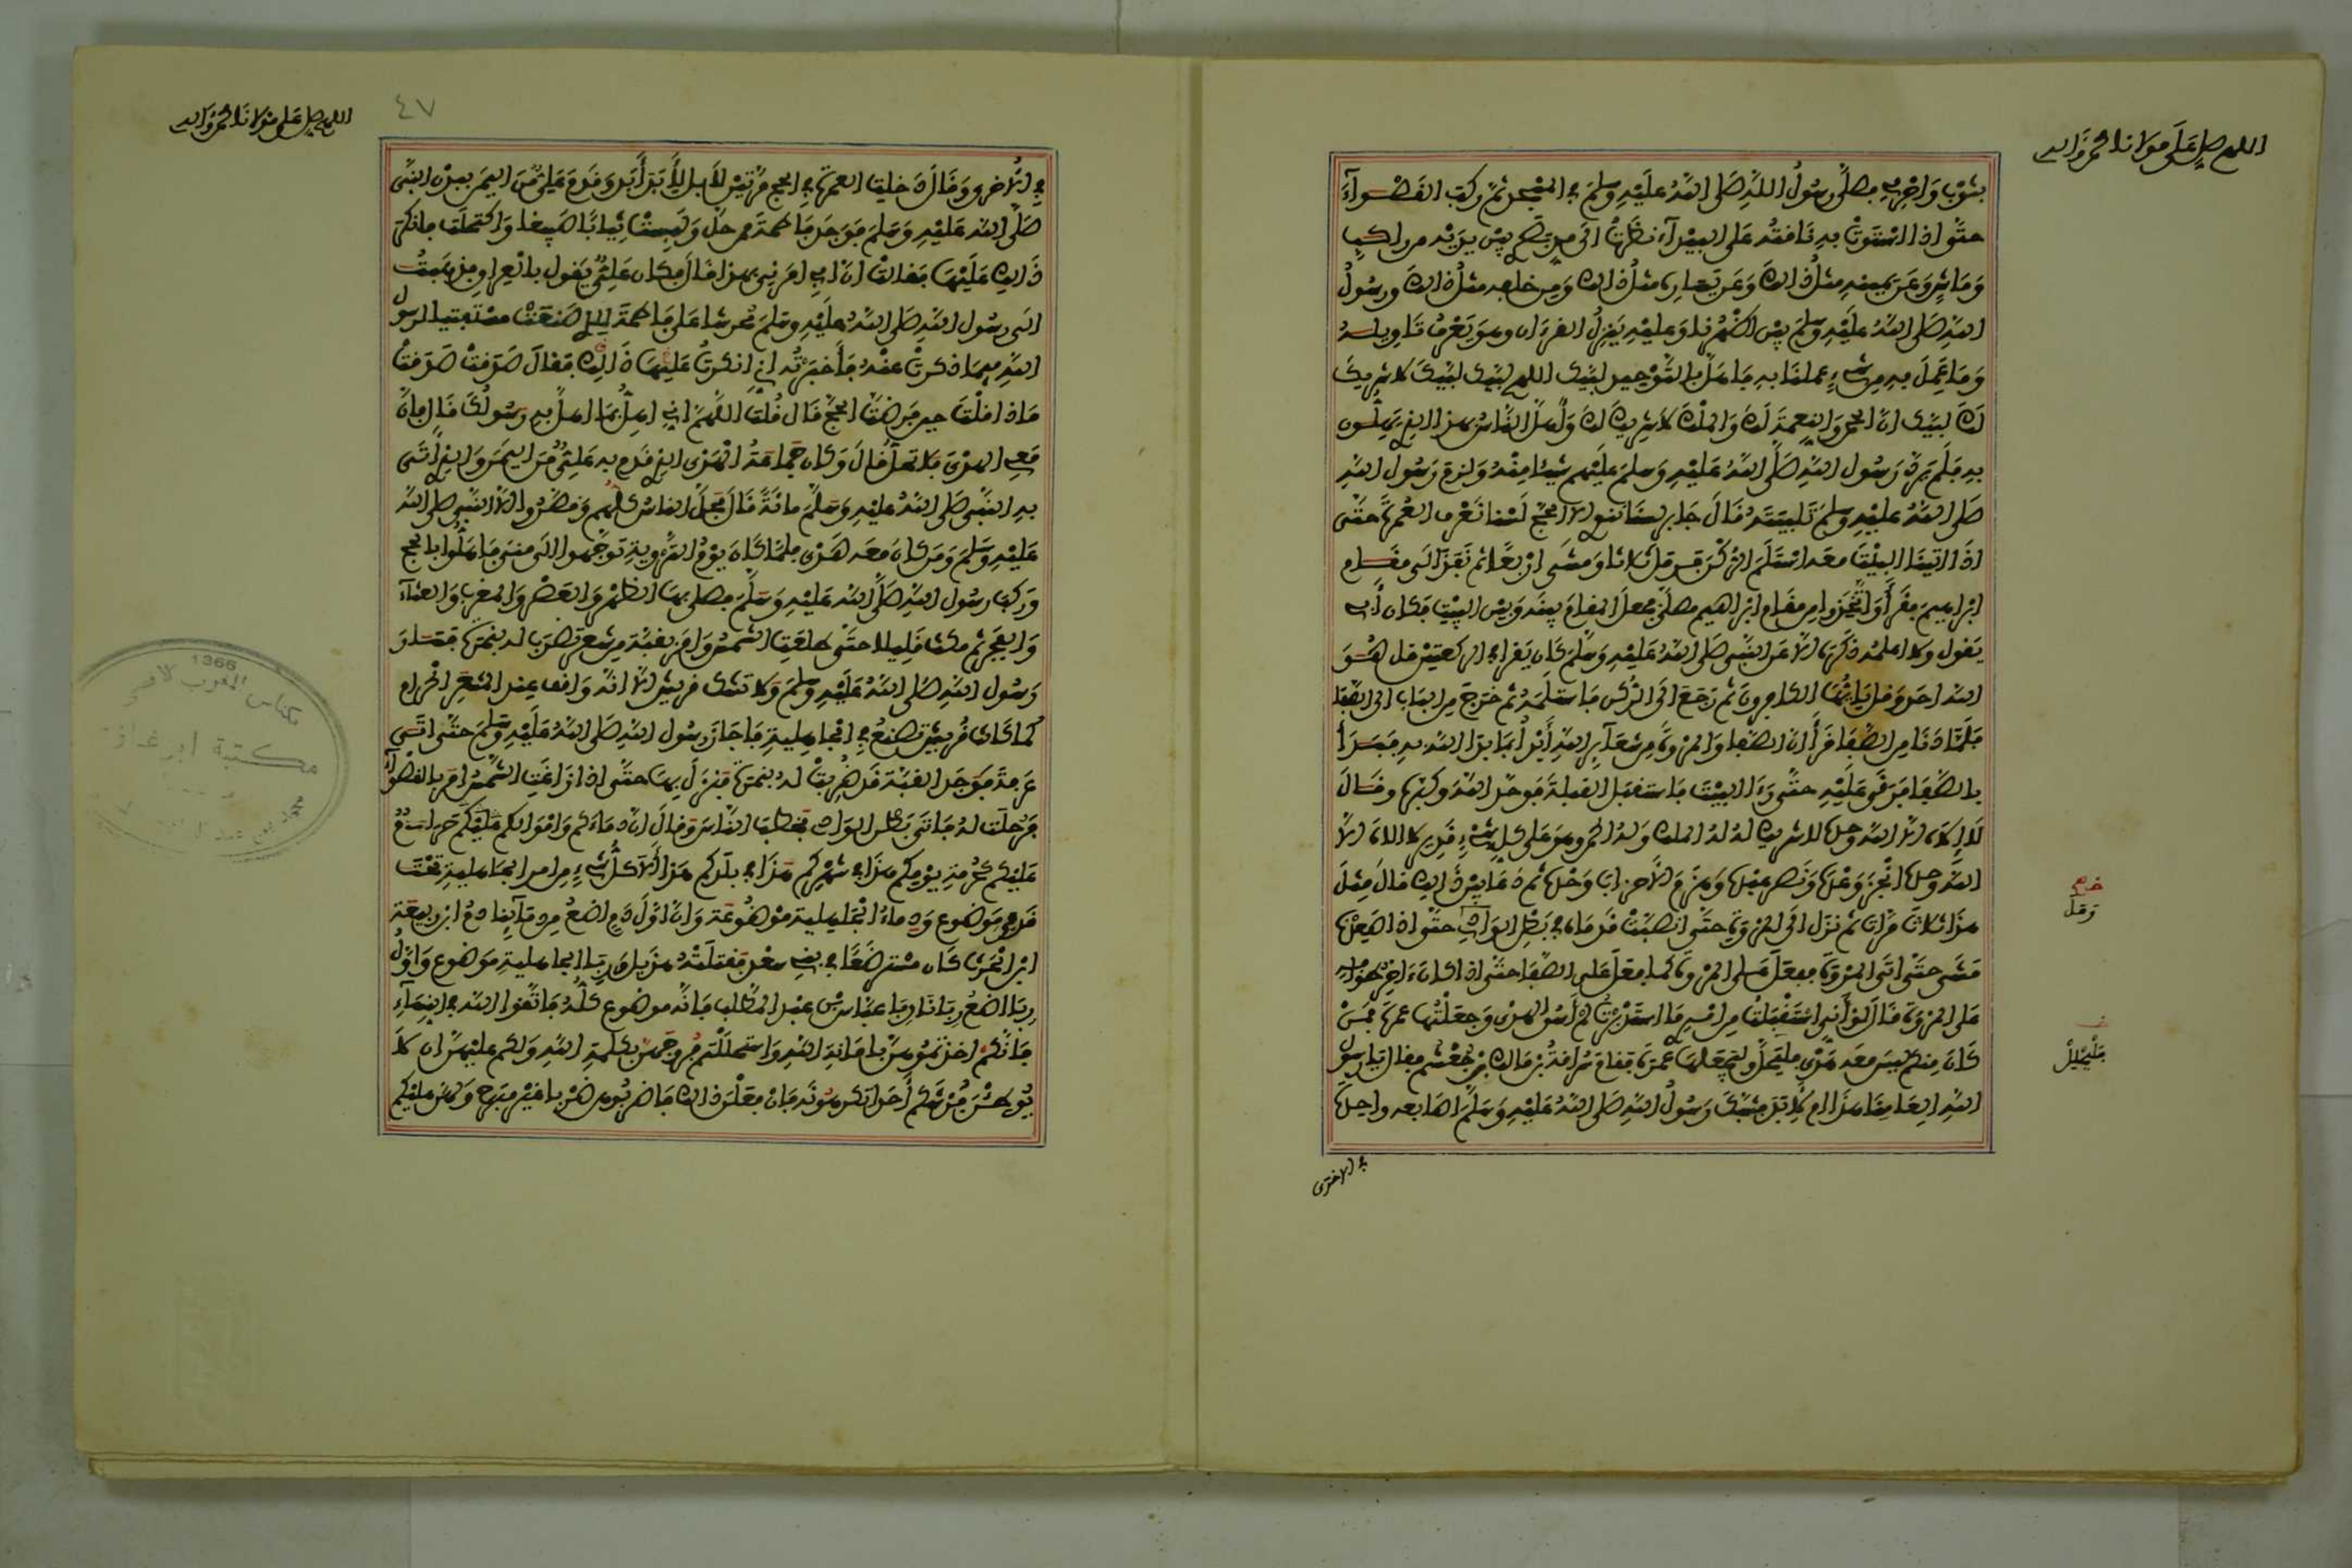 اللهم صل على مولانا محمد وآله
بثوب واحرمي فصلى رسول الله صلى الله عليه وسلم في المسجد ثم ركب القصواء
حتى إذا استوت به ناقته على البيداء نظرت إلى مد بصري بين يديه من راكب
وماش وعن يمينه مثل ذلك وعن يساره مثل ذلك ومن خلفه مثل ذلك ورسول
الله صلى الله عليه وسلم بين أظهرنا وعليه ينزل القرءان وهو يعرف تاويله
وما عمل به من شيء عملنا به فاهل بالتوحيد لبيك اللهم لبيك لبيك لا شريك
لك لبيك ان الحمد والنعمة لك والملك لا شريك لك وأهل الناس بهذا الذي يهلون
به فلم يرد رسول الله صلى الله عليه وسلم عليهم شيئا منه ولزم رسول الله
صلى الله عليه وسلم تلبيته قال جابر لسنا ننوي الا الحج لسنا نعرف العمرة حتى
اذا اتينا البيت معه استلم الركن فرمل ثلاثا ومشى اربعا ثم نفذ الى مقام
ابراهيم فقرأ واتخذوا من مقام ابراهيم مصلى فجعل المقام بينه وبين البيت فكان أبي
يقول ولا اعلمه ذكره الا عن النبي صلى الله عليه وسلم كان يقرأ في الركعتين قل هو
الله احد وقل يايها الكافرون ثم رجع الى الركن فاستلمه ثم خرج من الباب الى الصفا
فلما دنا من الصفا قرأ ان الصفا والمروة من شعآئر الله أبدأ بما بدأ الله به فبدأ
بالصفا فرقى عليه حتى رءا البيت فاستقبل القبلة فوحد الله وكبره وقال
لا إله الا الله وحده لا شريك له له الملك وله الحمد وهو على كل شيء قدير لا اله الا
الله وحده انجز وعده ونصر عبده وهزم الأحزاب وحده ثم دعا بين ذلك قال مثل
هذا ثلاث مرات ثم نزل الى المروة حتى انصبت قدماه في بطن الوادي حتى اذا اصعدتا
مشى حتى اتى المروة ففعل على المروة كما فعل على الصفا حتى اذا كان ءاخر طوافه
على المروة قال لو أني استقبلت من امري ما استدبرت لم أسق الهدي وجعلتها عمرة فمن
كان منكم ليس معه هدي فليحل وليجعلها عمرة فقام سراقة بن مالك بن جعشم فقال يا رسول
الله العامنا هذا ام لابد فشبك رسول الله صلى الله عليه وسلم اصابعه واحدة
في الاخرى
فليحلل
اللهم صل على مولانا محمد وآله
٤٧
في الأخرى وقال دخلت العمرة في الحج مرتين لا بل لأبد أبد وقدم علي من اليمن ببدن النبي
صلى الله عليه وسلم فوجد فاطمة ممن حل ولبست ثيابا صبيغا واكتحلت فانكر
ذلك عليها فقالت ان أبي امرني بهذا قال فكان علي يقول بالعراق فذهبت
الى رسول الله صلى الله عليه وسلم محرشا على فاطمة للذي صنعت مستفتيا لرسول
الله فيما ذكرت عنه فأخبرته اني انكرت عليها ذلك فقال صدقت صدقت
ماذا قلت حين فرضت الحج قال قلت اللهم اني اهل بما اهل به رسولك قال فان
معي الهدي فلا تحل قال وكان جماعة الهدي الذي قدم به علي من اليمن والذي أتى
به النبي صلى الله عليه وسلم مائة قال فحل الناس كلهم وقصروا الا النبي صلى الله
عليه وسلم ومن كان معه هدي فلما كان يوم التروية توجهوا الى منى فاهلوا بالحج
وركب رسول الله صلى الله عليه وسلم فصلى بها الظهر والعصر والمغرب والعشآء
والفجر ثم مكث قليلا حتى طلعت الشمس وامر بقبة من شعر تضرب له بنمرة فسار
رسول الله صلى الله عليه وسلم ولا تشك قريش الا انه واقف عند المشعر الحرام
كما كانت قريش تصنع في الجاهلية فاجاز رسول الله صلى الله عليه وسلم حتى اتى
عرفة فوجد القبة قد ضربت له بنمرة فنزل بها حتى اذا زاغت الشمس أمر بالقصوآء
فرحلت له فاتى بطن الوادي فخطب الناس وقال ان دماءكم واموالكم عليكم حرام
عليكم كحرمة يومكم هذا في شهركم هذا في بلدكم هذا ألا كل شيء من امر الجاهلية تحت
قدمي موضوع ودماء الجاهلية موضوعة وان اول دم اضع من دمآئنا دم ابن ربيعة
ابن الحرث كان مسترضعا في بني سعد فقتلته هذيل وربا الجاهلية موضوع واول
ربا اضع ربانا ربا عباس بن عبد المطلب فانه موضوع كله فاتقوا الله في النسآء
فانكم اخذتموهن بامانة الله واستحللتم فروجهن بكلمة الله ولكم عليهن ان لا
يوطئن فرشكم أحدا تكرهونه فان فعلن ذلك فاضربوهن ضربا غير مبرح ولهن عليكم
1366
مكناس المغرب الاقصى
مكتبة ابن غازي